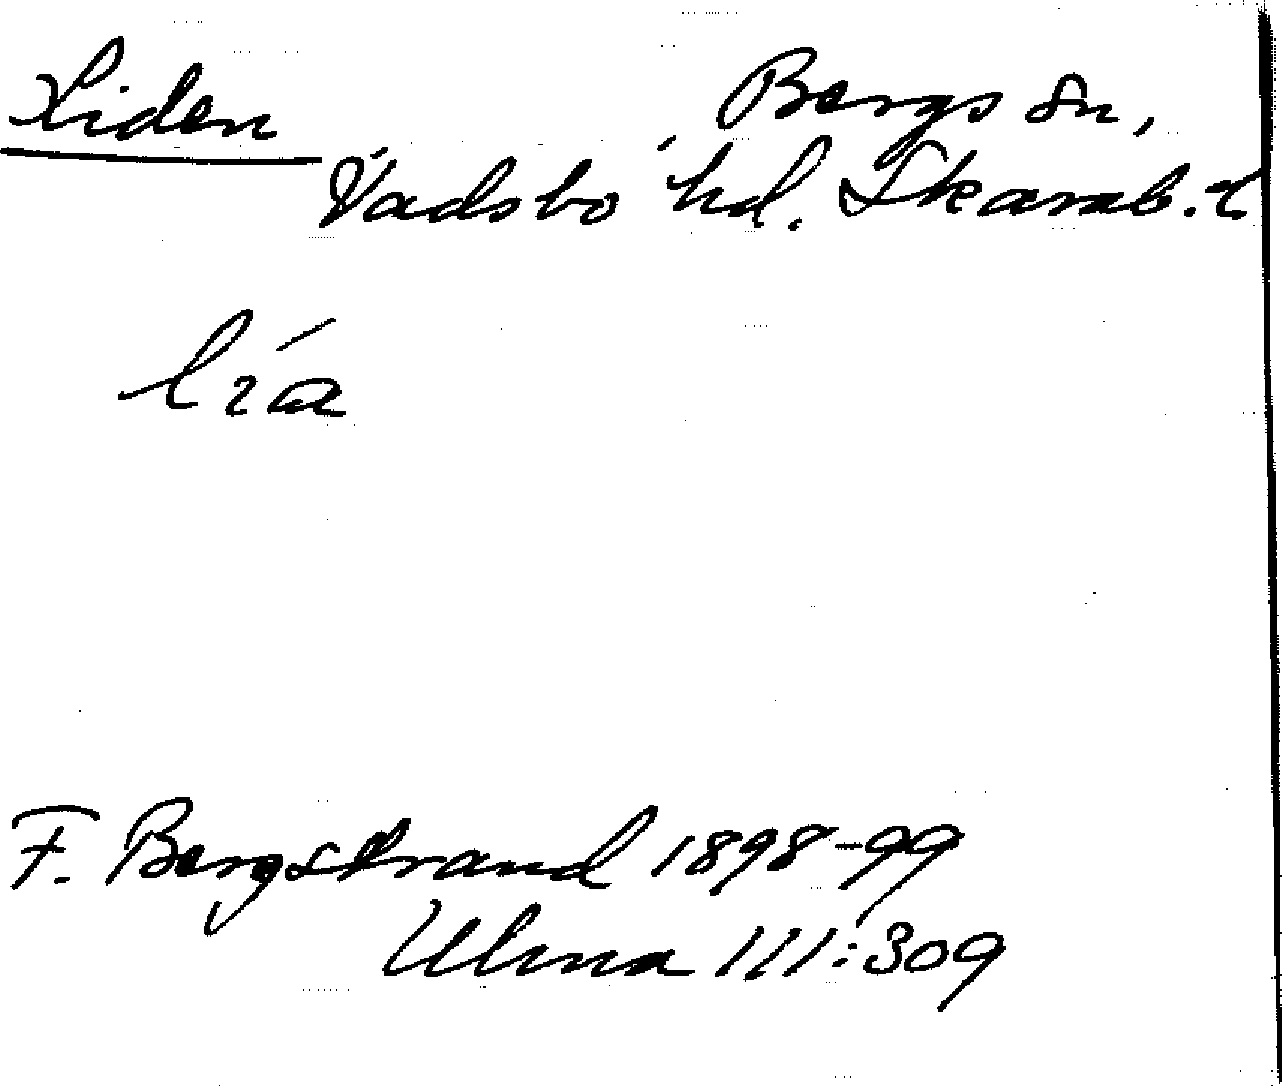 Liden Bergs sn,
Vadsbo hd. Skarab. l.
lıá
F. Bergstrand 1898-99
Ulma 111:309